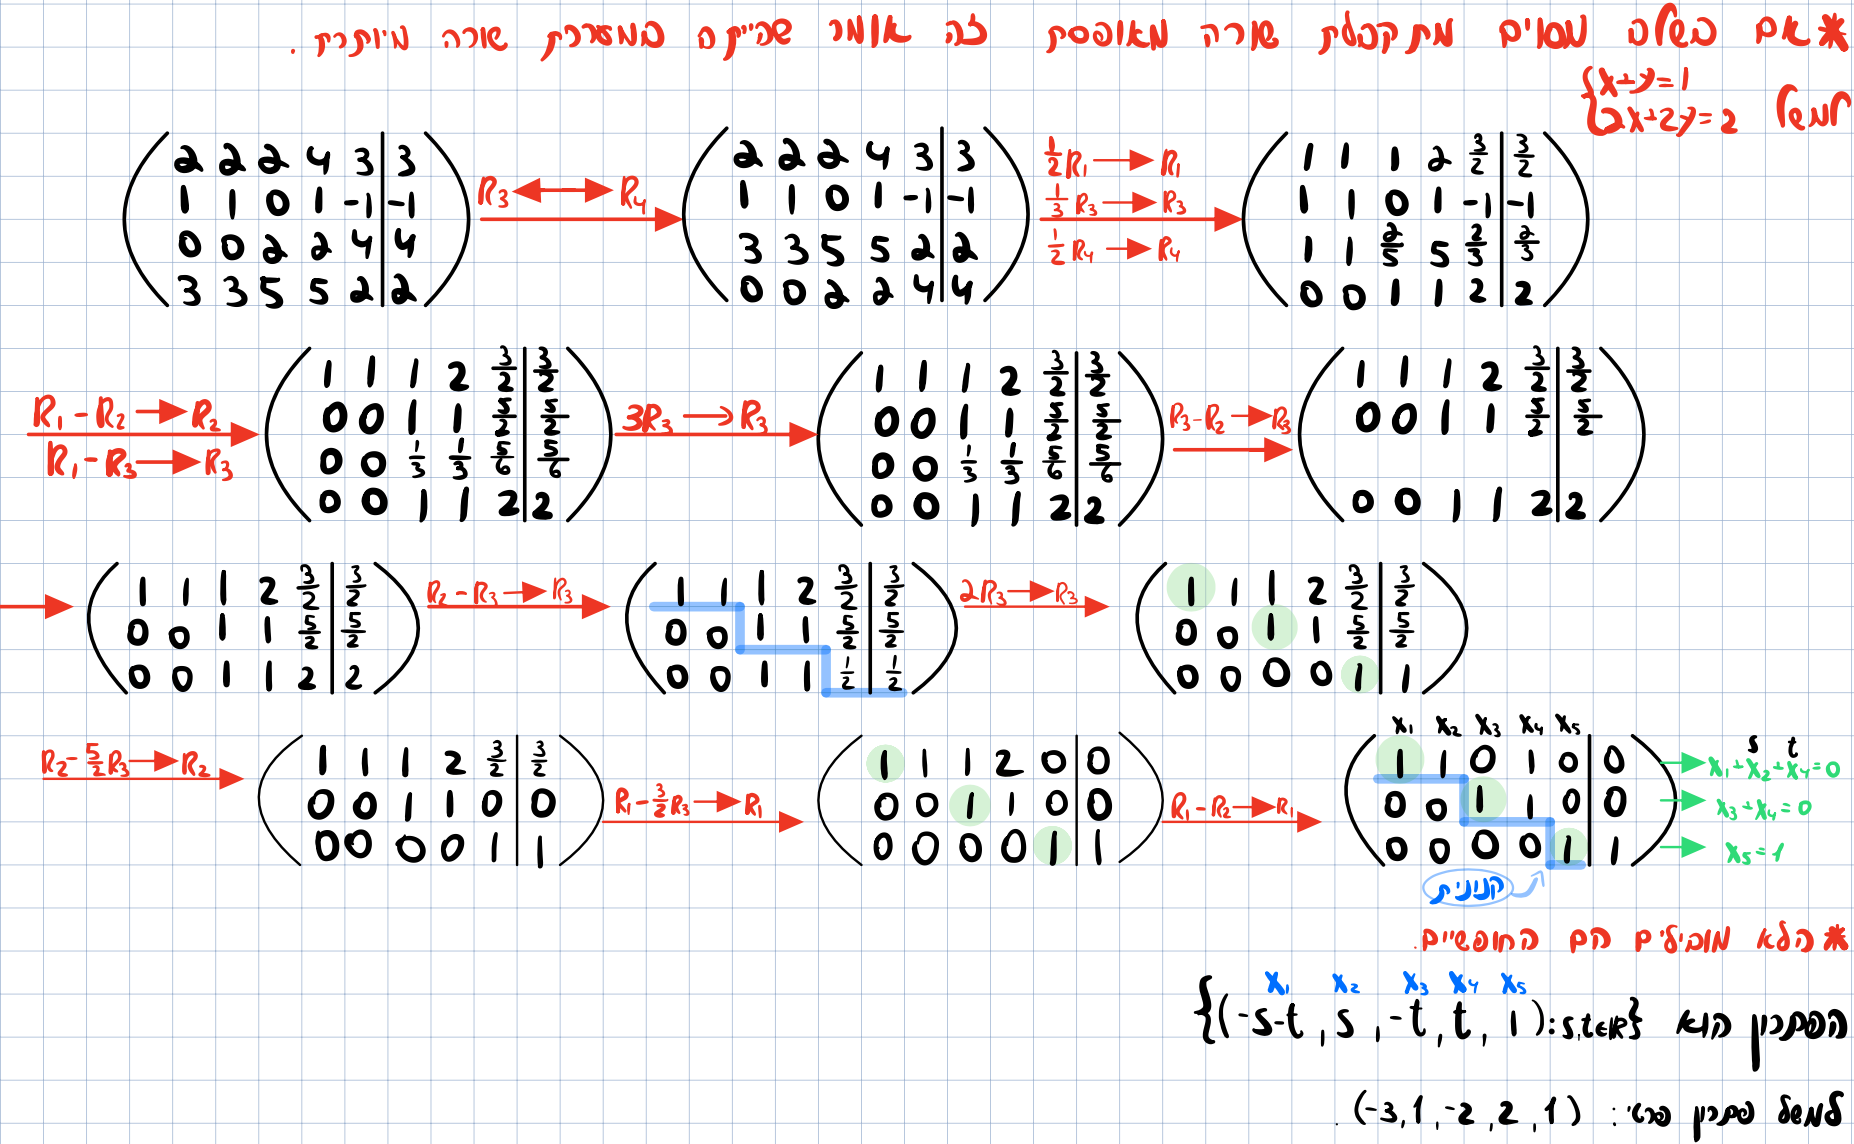 *אם בשלב מסוים מתקבלת שורה מאופסת זה אומר שהייתה במערכת שורה מיותרת.
למשל { x+y=1
2x+2y=2
2 2 2 4 3 | 3
1 1 0 1 -1 | -1
0 0 2 2 4 | 4
3 3 5 5 2 | 2
R₃ ↔ R₄
2 2 2 4 3 | 3
1 1 0 1 -1 | -1
3 3 5 5 2 | 2
0 0 2 2 4 | 4
½R₁ → R₁
⅓R₃ → R₃
½R₄ → R₄
1 1 1 2 3/2 | 3/2
1 1 0 1 -1 | -1
1 1 2/5 5 2/3 | 2/3
0 0 1 1 2 | 2
R₁-R₂ → R₂
R₁-R₃ → R₃
1 1 1 2 3/2 | 3/2
0 0 1 1 5/2 | 5/2
0 0 1/3 1/3 5/6 | 5/6
0 0 1 1 2 | 2
3R₃ → R₃
1 1 1 2 3/2 | 3/2
0 0 1 1 5/2 | 5/2
0 0 1/3 1/3 5/6 | 5/6
0 0 1 1 2 | 2
R₃-R₂ → R₃
1 1 1 2 3/2 | 3/2
0 0 1 1 5/2 | 5/2
0 0 1 1 2 | 2
→
1 1 1 2 3/2 | 3/2
0 0 1 1 5/2 | 5/2
0 0 1 1 2 | 2
R₂-R₃ → R₃
1 1 1 2 3/2 | 3/2
0 0 1 1 5/2 | 5/2
0 0 1 1 1/2 | 1/2
2R₃ → R₃
1 1 1 2 3/2 | 3/2
0 0 1 1 5/2 | 5/2
0 0 0 0 1 | 1
R₂-5/2R₃ → R₂
1 1 1 2 3/2 | 3/2
0 0 1 1 0 | 0
0 0 0 0 1 | 1
R₁-3/2R₃ → R₁
1 1 1 2 0 | 0
0 0 1 1 0 | 0
0 0 0 0 1 | 1
R₁-R₂ → R₁
x₁ x₂ x₃ x₄ x₅
1 1 0 1 0 | 0
0 0 1 1 0 | 0
0 0 0 0 1 | 1
s t
→ x₁+x₂+x₄=0
→ x₃+x₄=0
→ x₅=1
קנונית
*הלא מובילים הם החופשיים.
x₁ x₂ x₃ x₄ x₅
הפתרון הוא {(-s-t, s, -t, t, 1): s,t∈R}
למשל פתרון פרטי: (-3,1,-2,2,1).